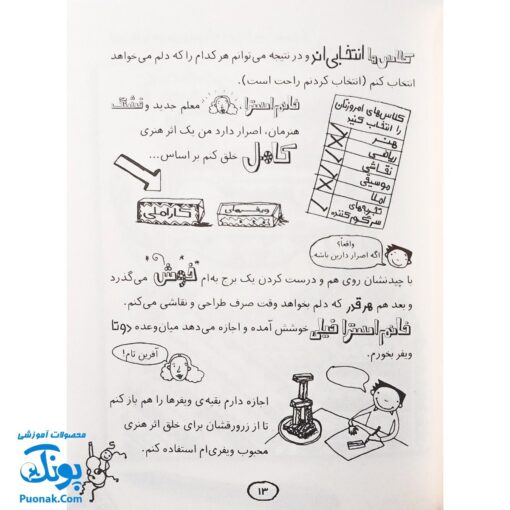 کلاس‌ها انتخابی‌اند و در نتیجه می‌توانم هر کدام را که دلم می‌خواهد
انتخاب کنم (انتخاب کردنم راحت است).
خانم استرا، معلم جدید و قشنگ
هنرمان، اصرار دارد من یک اثر هنری
کامل خلق کنم بر اساس...
کلاس‌های امروزتان
را انتخاب کنید
هنر
ریاضی
نقاشی
موسیقی
املا
تکیه‌های
سرگرم‌کننده
ویفرهای
کاراملی
واقعاً؟
اگه اصرار دارین باشه.
با چیدنشان روی هم و درست کردن یک برج به‌ام خوش می‌گذرد
و بعد هم هر قدر که دلم بخواهد وقت صرف طراحی و نقاشی می‌کنم.
خانم استرا خیلی خوشش آمده و اجازه می‌دهد میان‌وعده دو تا
ویفر بخورم.
آفرین تام!
اجازه دارم بقیه‌ی ویفرها را هم باز کنم
تا از زرورقشان برای خلق اثر هنری
محبوب ویفری‌ام استفاده کنم.
۱۳
محصولات آموزشی
پونک
Puonak.Com